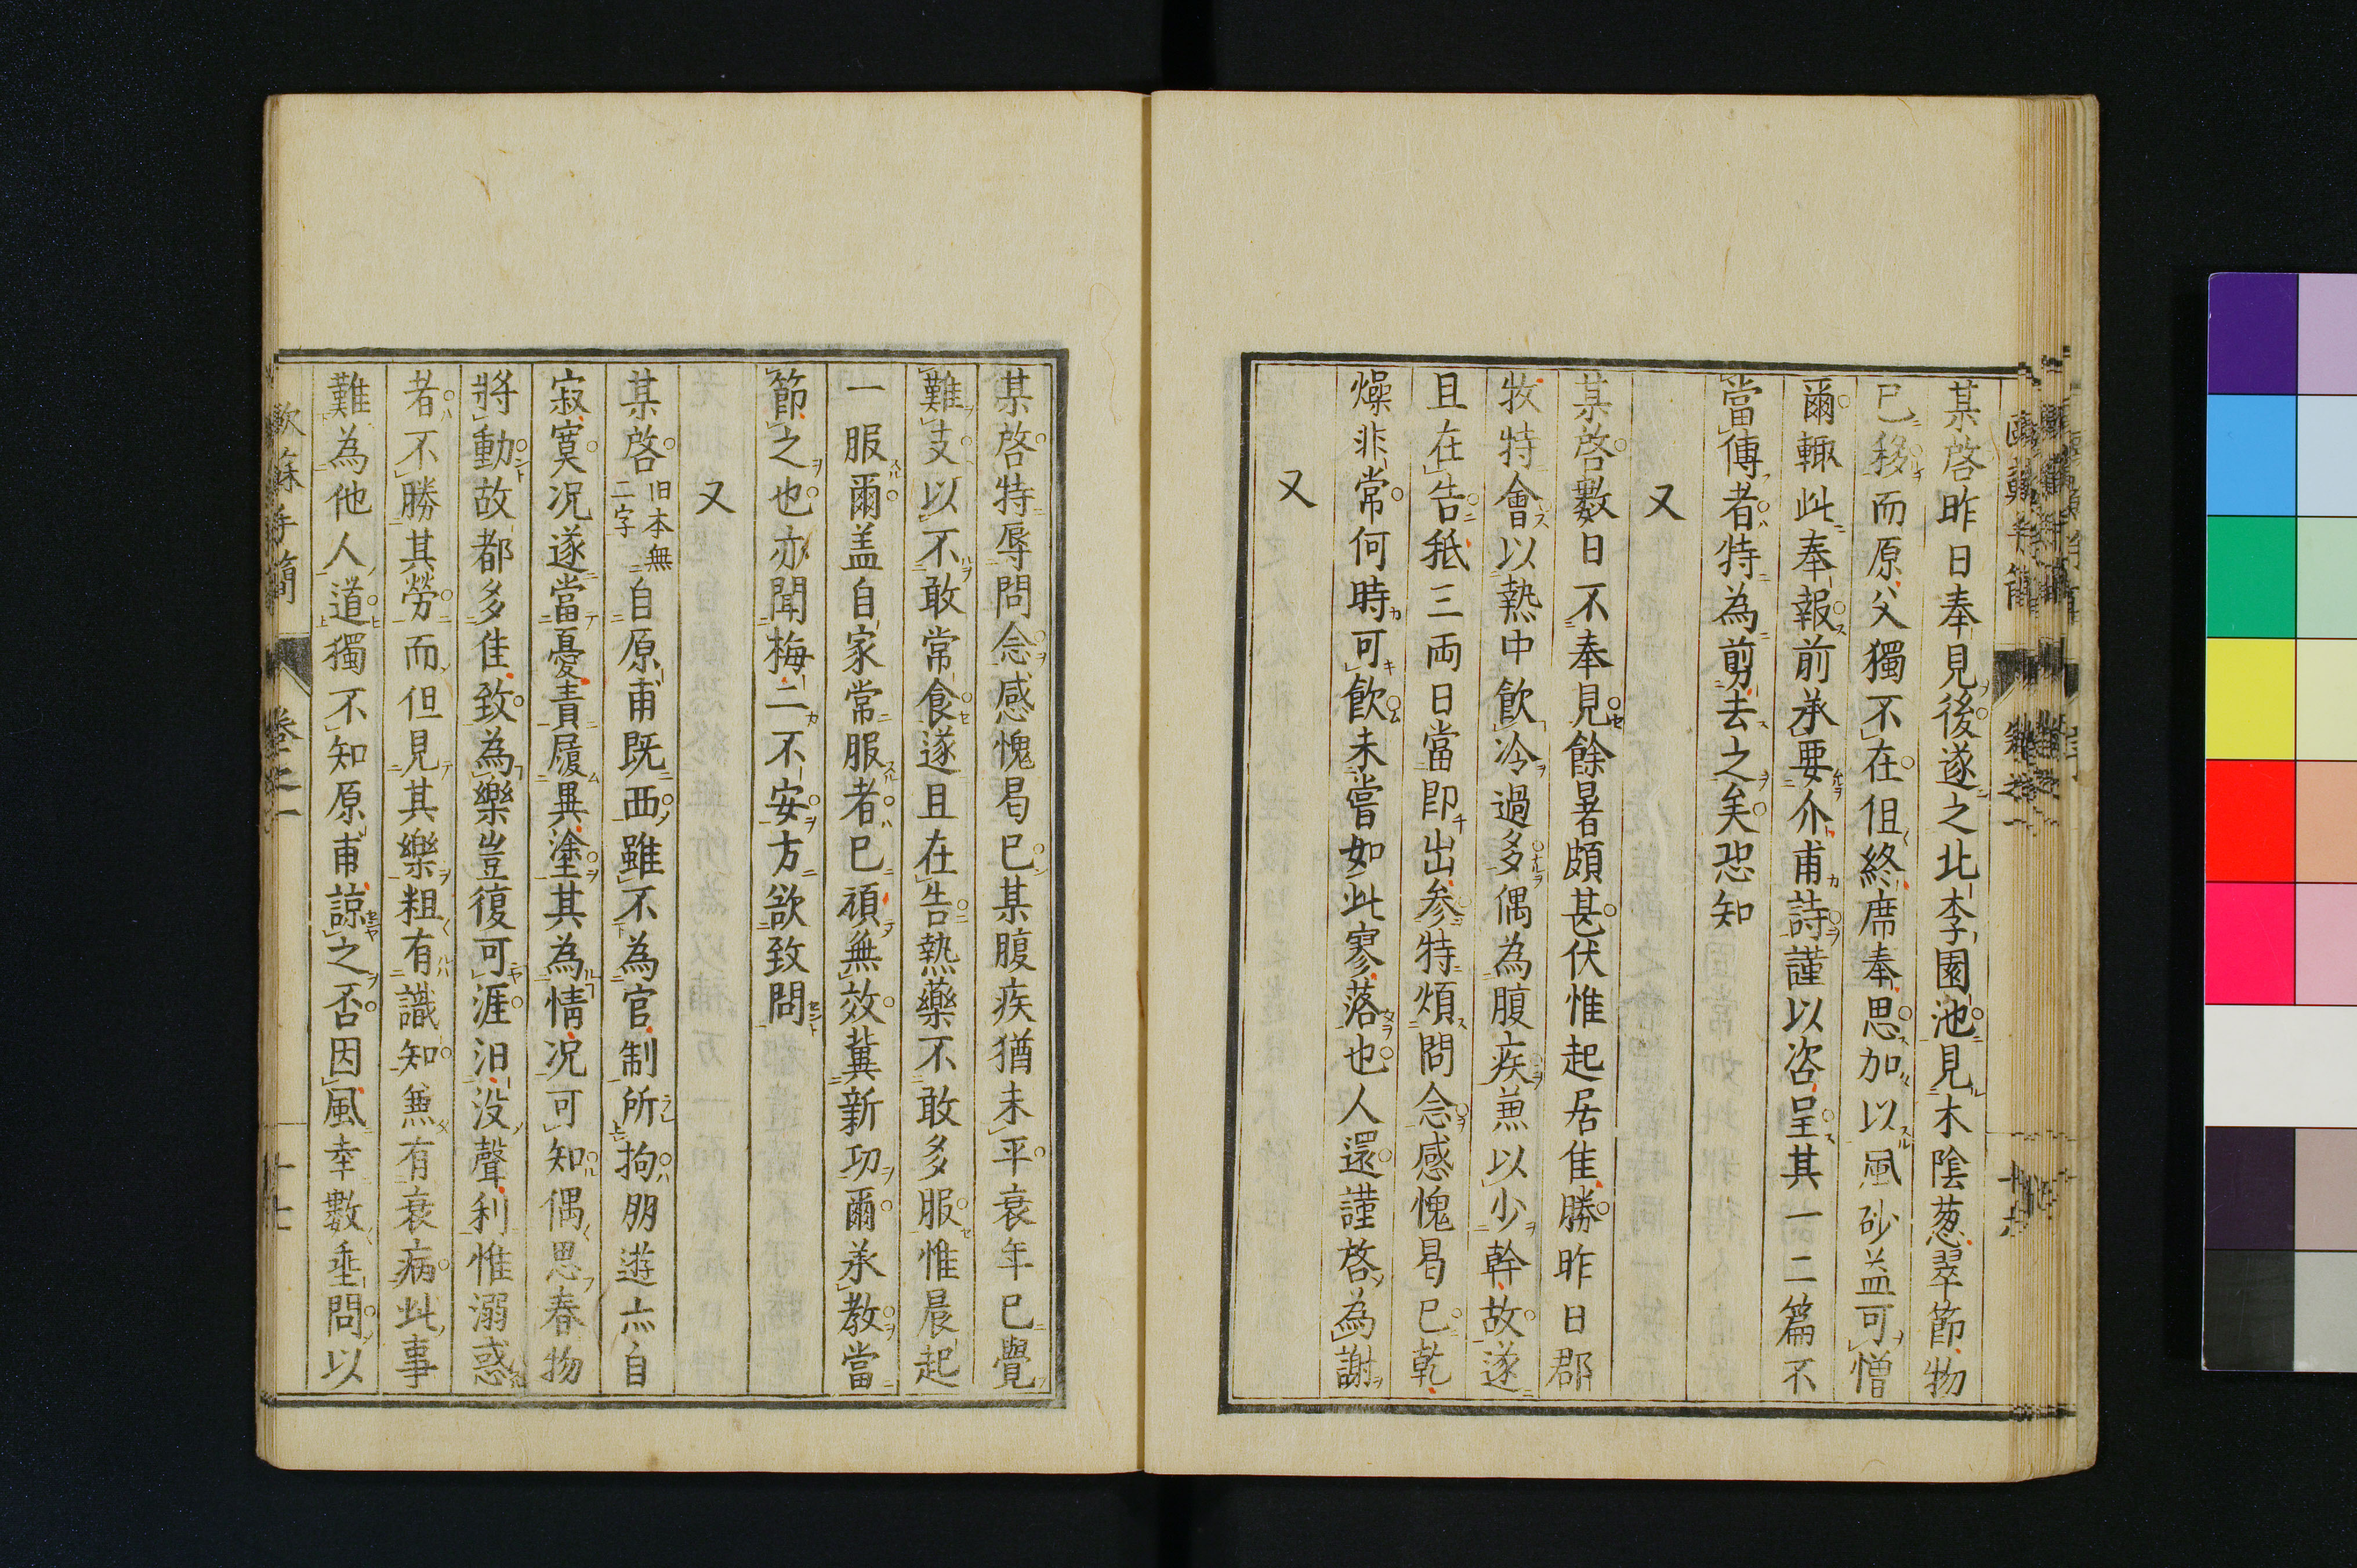 某啓昨日奉見後遂之北李園池見木陰葱翠節物
已移而原父獨不在但終席奉思加以風砂益可憎
爾輙此奉報前承要介甫詩謹以咨呈其一二篇不
當傳者特為剪去之矣恐知
又
某啓數日不奉見餘暑頗甚伏惟起居佳勝昨日郡
牧特會以熱中飲冷過多偶為腹疾兼以少幹故遂
且在告秪三両日當即出参特煩問念感愧曷已乾
燥非常何時可飲未嘗如此寥落也人還謹啓為謝
又
某啓特辱問念感愧曷已某腹疾猶未平衰年已覺
難支以不敢常食遂且在告熱藥不敢多服惟晨起
一服爾盖自家常服者已頑無效冀新功爾承教當
節之也亦聞梅二不安方欲致問
又
某啓旧本無二字自原甫既西雖不為官制所拘朋遊亦自
寂寞况遂當憂責履異塗其為情况可知偶思春物
將動故都多佳致為樂豈復可涯汨没聲利惟溺惑
者不勝其勞而但見其樂粗有識知無有衰病此事
難為他人道獨不知原甫諒之否因風幸數垂問以
歐蘇手簡 卷之一 十七